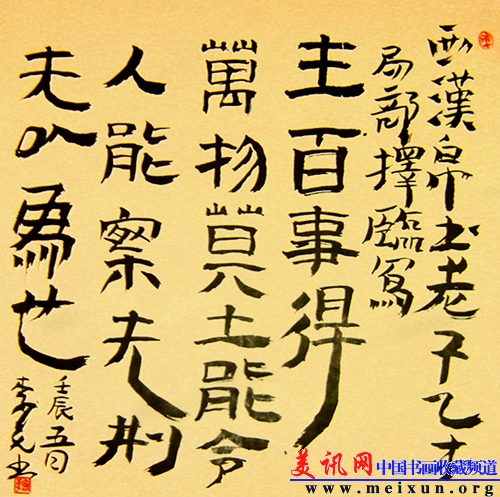 西漢帛書老子乙本
局部擇臨寫
主百事得
萬物莫之能令
人能察夫刑
夫以為也
壬辰五月
李克书
美讯网 中国书画收藏频道
www.meixun.org